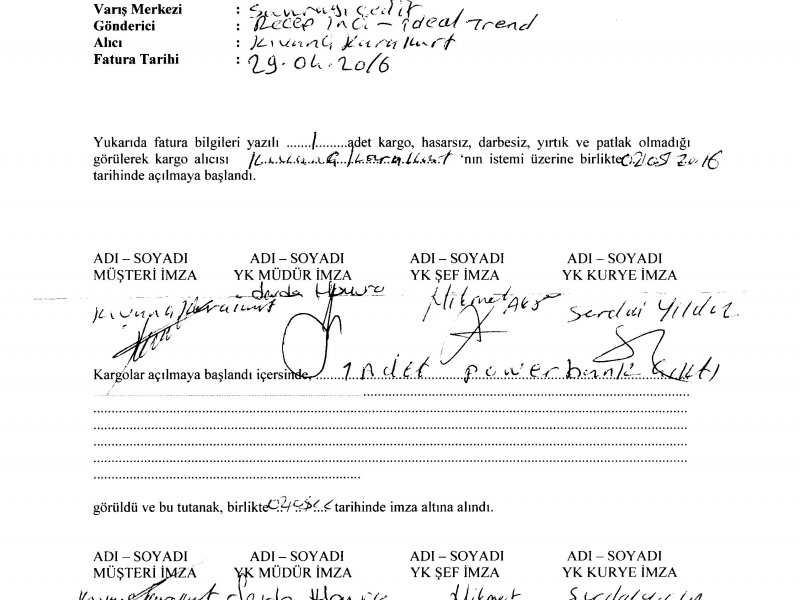 Varış Merkezi :
Gönderici : Recep İnci - ideal Trend
Alıcı : Kıvanç Karakurt
Fatura Tarihi : 29.04.2016
Yukarıda fatura bilgileri yazılı ......1.........adet kargo, hasarsız, darbesiz, yırtık ve patlak olmadığı
görülerek kargo alıcısı Kıvanç Karakurt 'nın istemi üzerine birlikte 02.05.2016
tarihinde açılmaya başlandı.
ADI – SOYADI ADI – SOYADI ADI – SOYADI ADI – SOYADI
MÜŞTERİ İMZA YK MÜDÜR İMZA YK ŞEF İMZA YK KURYE İMZA
Kıvanç Karakurt Hikmet Serdar Yıldız
Kargolar açılmaya başlandı içersinde, 1 Adet powerbank çıktı
görüldü ve bu tutanak, birlikte tarihinde imza altına alındı.
ADI – SOYADI ADI – SOYADI ADI – SOYADI ADI – SOYADI
MÜŞTERİ İMZA YK MÜDÜR İMZA YK ŞEF İMZA YK KURYE İMZA
Hikmet